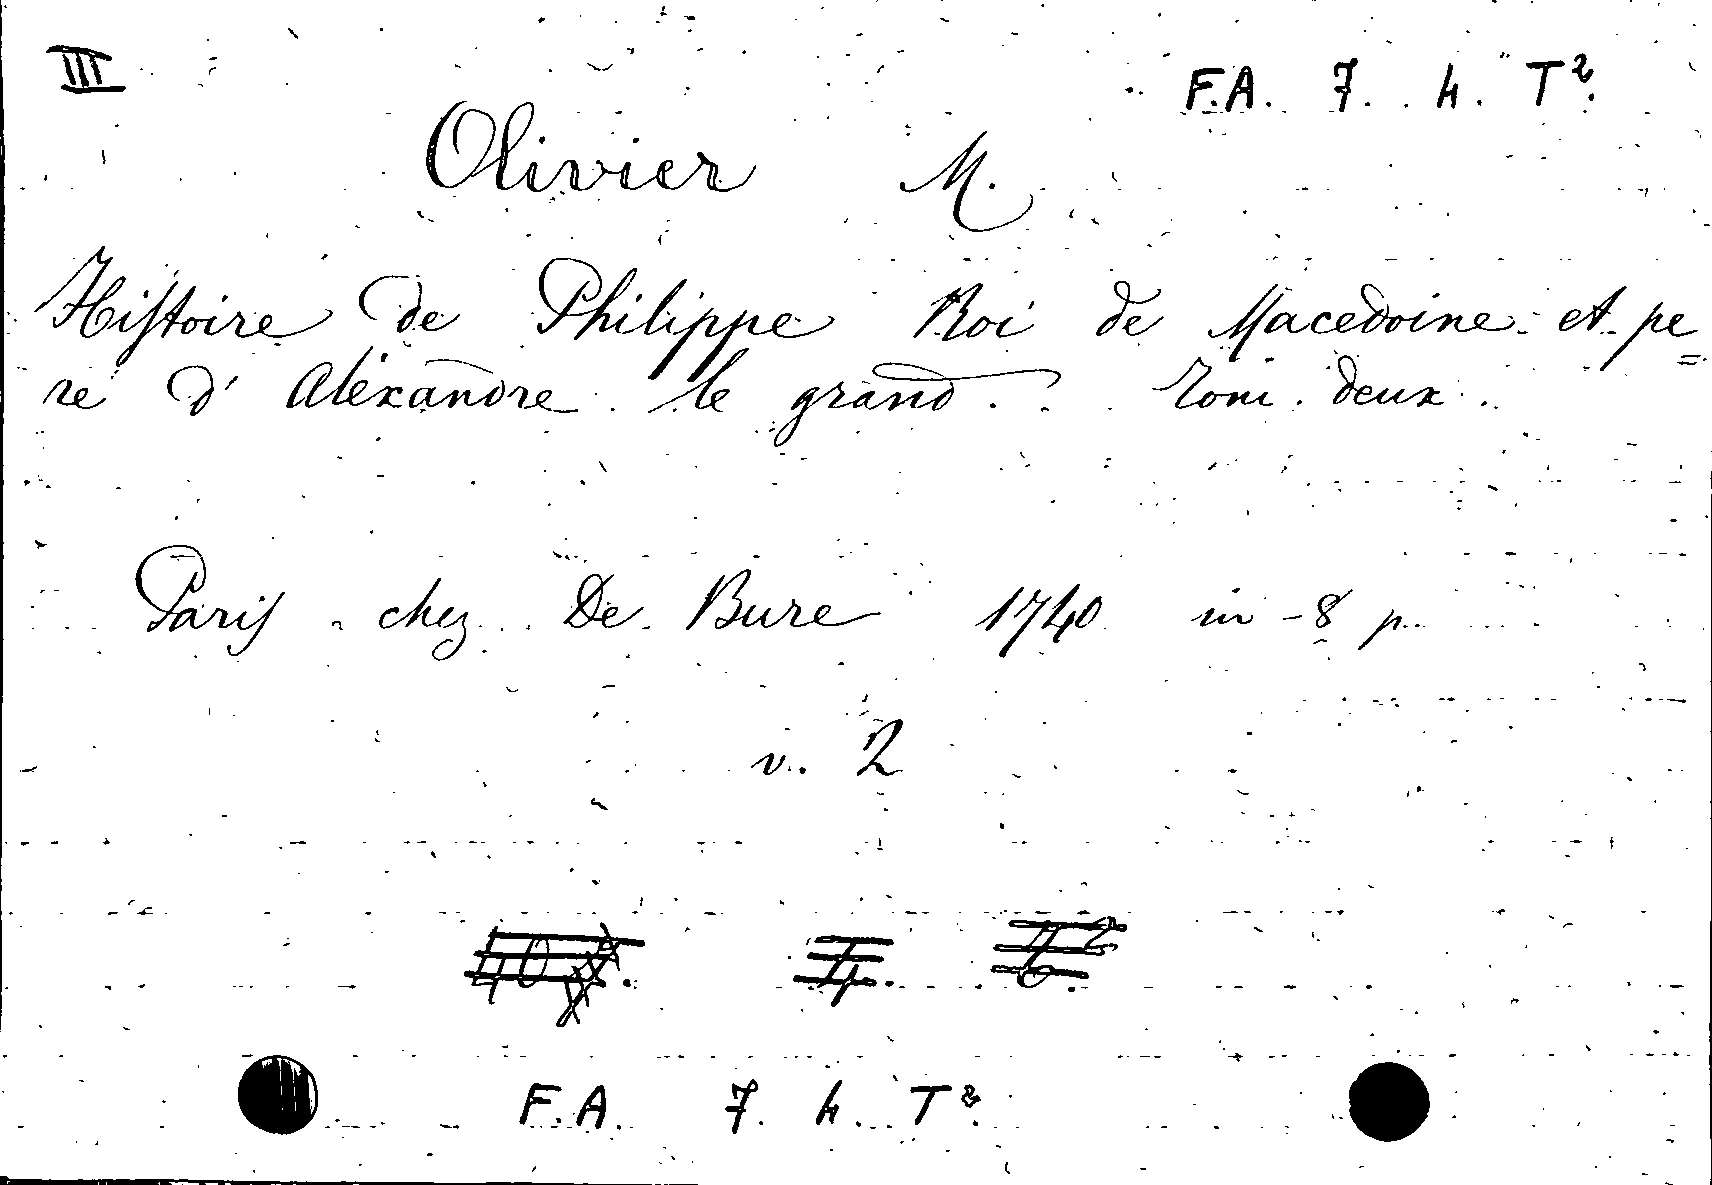 III
F.A. 7. h. T².
Olivier M.
Histoire de Philippe Roi de Macedoine et pe=
re d' Alexandre le grand. Tom. deux.
Paris chez De Bure 1740 in-8 p.
v. 2
F.A. 7. h. T².